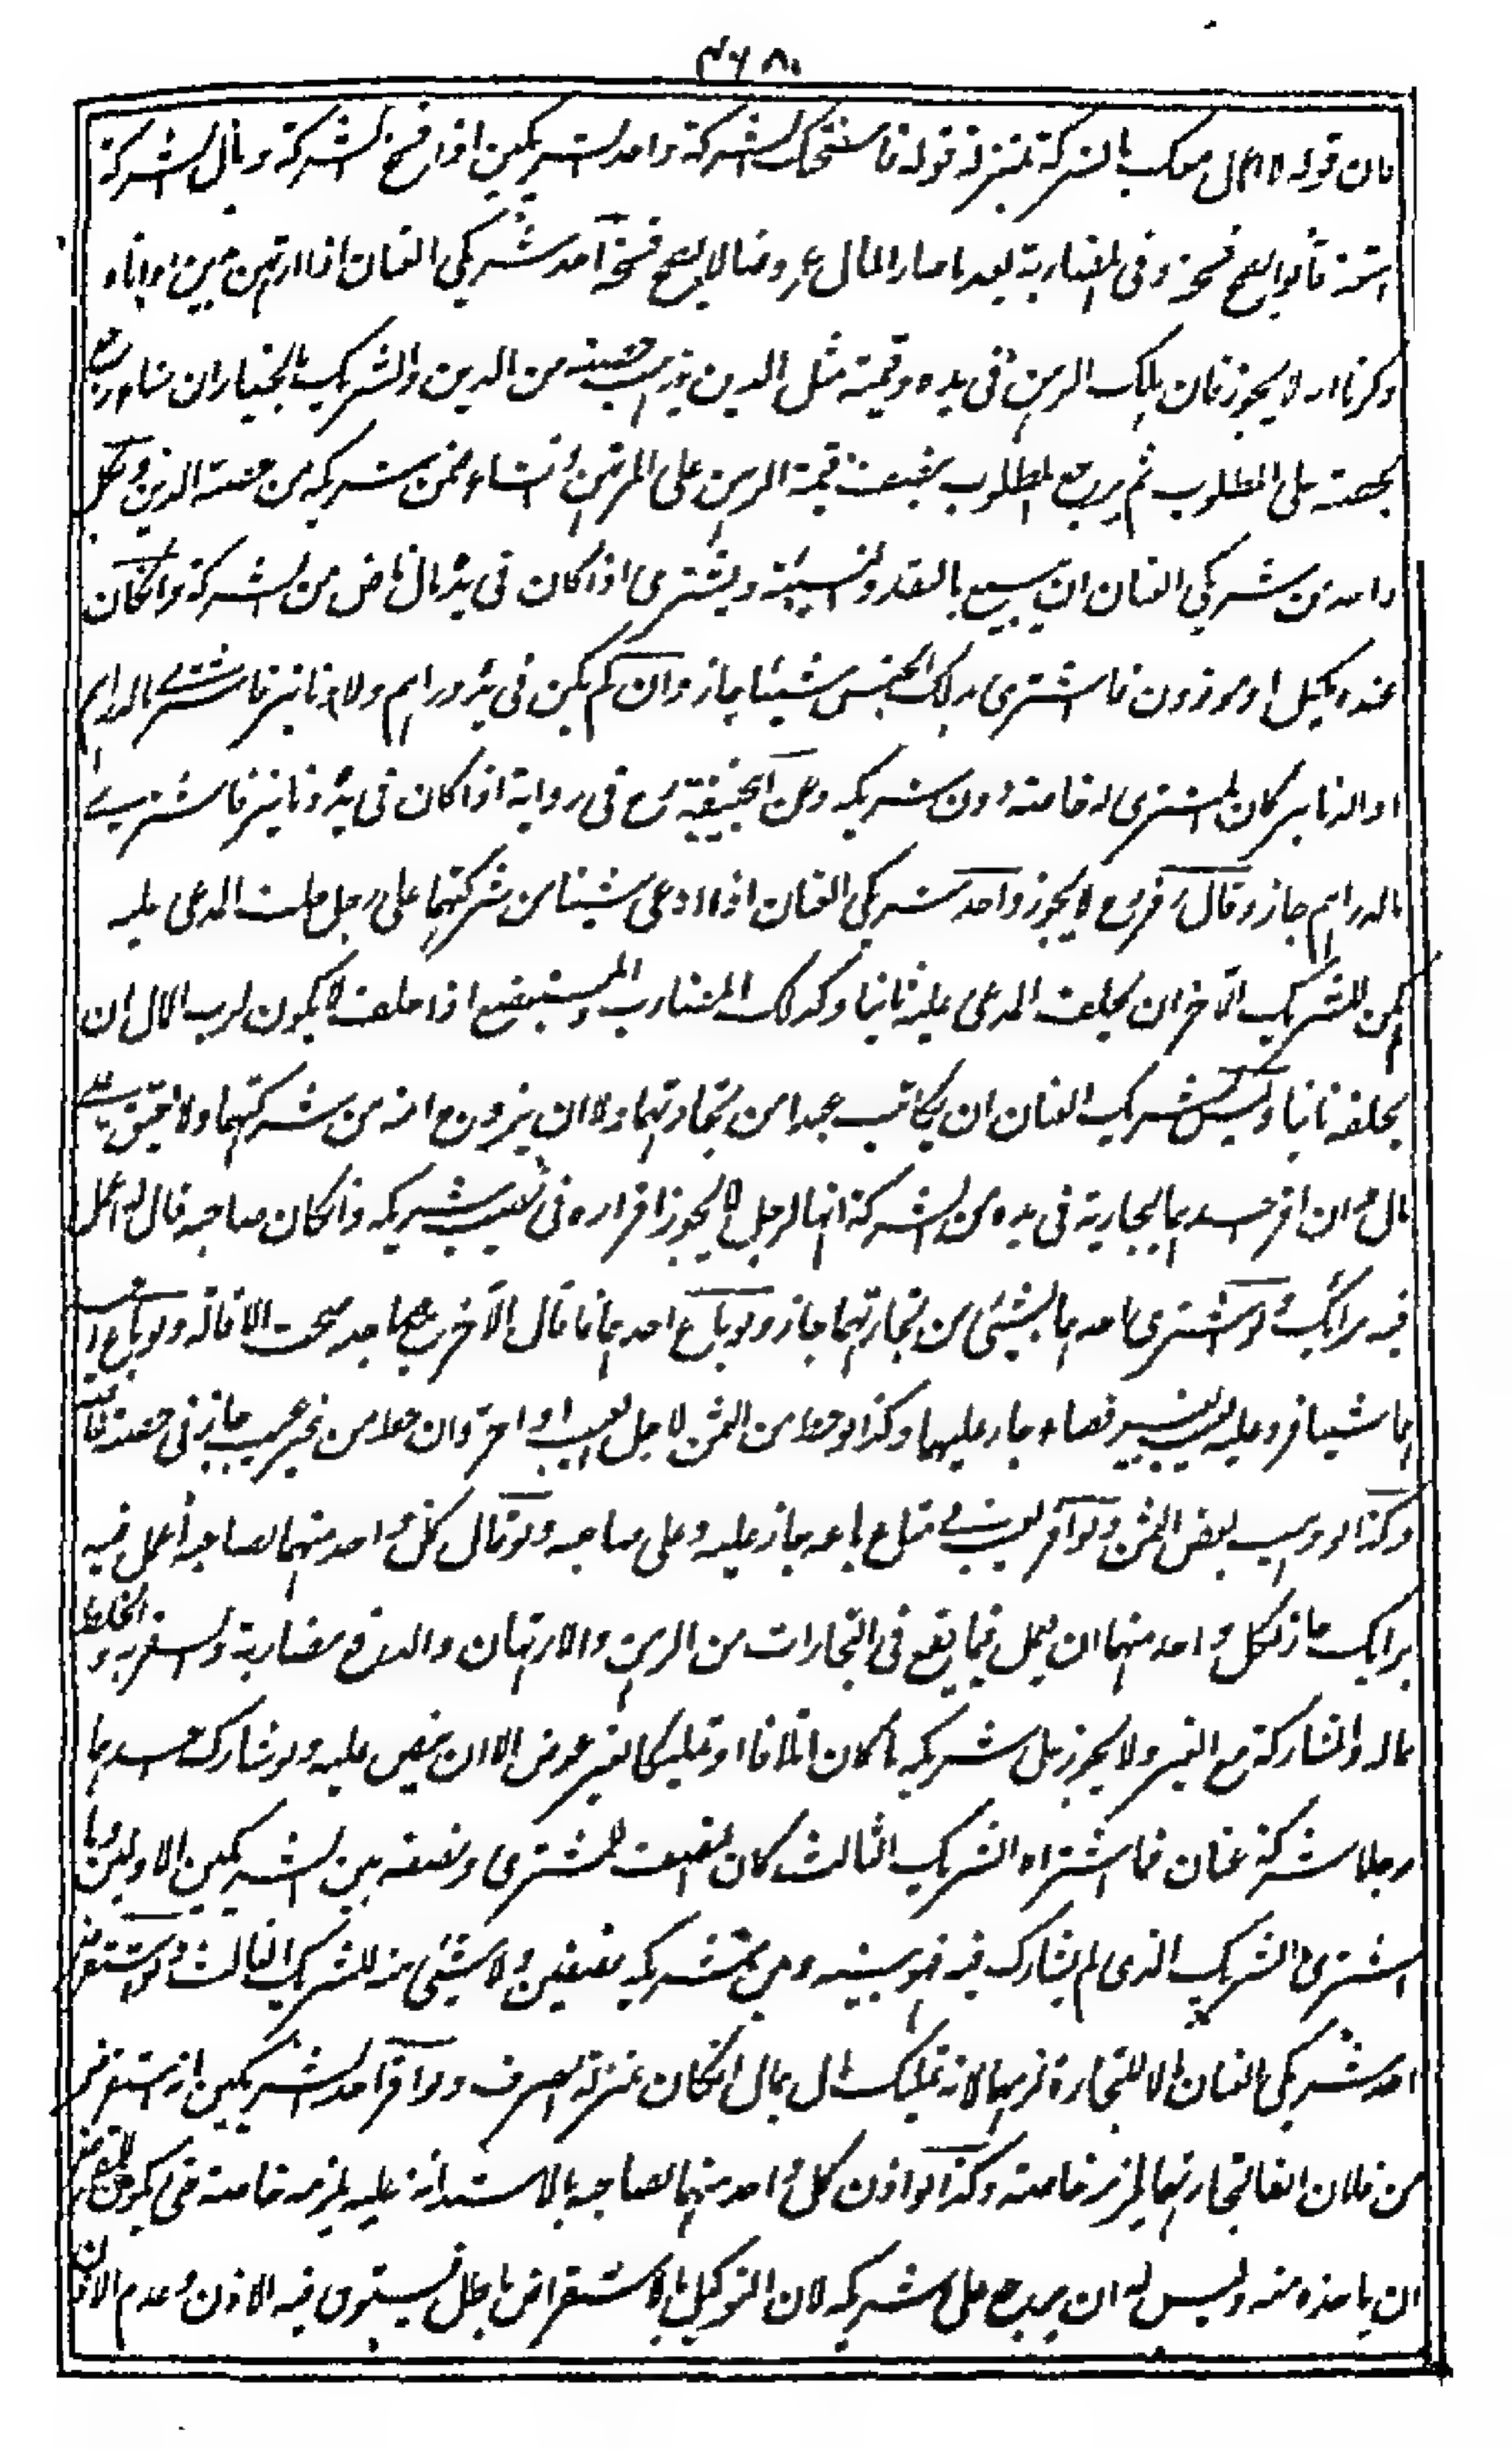 ٤٦٨
فان قوله لا اعمل معك بالشركة بمنزلة قوله فاسختك الشركة واحد الشريكين اذا فسخ الشركة ومال الشركة
امتعة قالوا يصح فسخه وفى المضاربة بعد ما صار المال عروضا لا يصح فسخه احد شريكى العنان اذا ارتهن بدين
ذكرنا انه لا يجوز فان هلك الرهن فى يده وقيمته مثل الدين يذهب حصته من الدين والشريك بالخيار ان شاء رجع
بحصته على المطلوب ثم يرجع المطلوب بنصف قيمة الرهن على المرتهن وان شاء ضمن شريكه من حصته الدين ولكل
واحد من شريكى العنان ان يبيع بالنقد والنسيئة ويشترى اذا كان فى يده مال ناض من الشركة وان كان
عنده مكيل او موزون فاشترى بذلك الجنس شيئا جاز وان لم يكن فى يده دراهم ولا دنانير فاشترى بالدراهم
او الدنانير كان المشترى له خاصة دون شريكه وعن ابيحنيفة رح فى رواية اذا كان فى يده دنانير فاشترى
بالدراهم جاز وقال زفر رح لا يجوز واحد شريكى العنان اذا ادعى شيئا من شركتهما على رجل وحلف المدعى عليه
لم يكن للشريك الآخر ان يحلف المدعى عليه ثانيا وكذلك المضارب والمستبضع اذا حلف لا يكون لرب المال ان
يحلفه ثانيا وليس لشريك العنان ان يكاتب عبدا من تجارتهما ولا ان يزوج امة من شركتهما ولا يعتق على
مال وان اقر احدهما بجارية فى يده من الشركة انها لرجل لا يجوز اقراره فى نصيب شريكه وان كان صاحبه قال له اعمل
فيه برأيك ولو اشترى احدهما شيئا من تجارتهما جاز ولو باع احدهما فاقال الآخر صاحبه صحت الاقالة ولو باع احد
هما شيئا فرد عليه بعيب بغير قضاء جاز عليهما وكذا لو حط من الثمن لاجل العيب او اخر وان حط من غير عيب جاز فى حصته خاصة
وكذا لو وهب بعض الثمن ولو اقر بعيب فى متاع باعه جاز عليه وعلى صاحبه ولو قال كل واحد منهما لصاحبه اعمل فيه
برأيك جاز لكل واحد منهما ان يعمل فيما يقع فى التجارات من الرهن والارتهان والدفع مضاربة والسفر به والخلط
بماله والمشاركة مع الغير ولا يجوز على شريكه ما كان اتلافا او تمليكا بغير عوض الا ان ينص عليه ولو شارك احدهما
رجلا شركة عنان فما اشتراه الشريك الثالث كان النصف للمشترى ونصفه بين الشريكين الاولين وما
اشترى الشريك الذى لم يشارك فيه فهو بينه وبين شريكه نصفين ولا شئ منه للشريك الثالث ولو استقرض
احد شريكى العنان مالا للتجارة لزمهما لانه تمليك مال بمال فكان بمنزلة الصرف ولو اقر احد الشريكين انه استقرض
من فلان الفا لتجارتهما يلزمه خاصة وكذا لو اذن كل واحد منهما لصاحبه بالاستدانة عليه يلزمه خاصة حتى يكون للمقرض
ان ياخذه منه وليس له ان يرجع على شريكه لان التوكيل بالاستقراض باطل فيستوى فيه الاذن وعدم الاذن